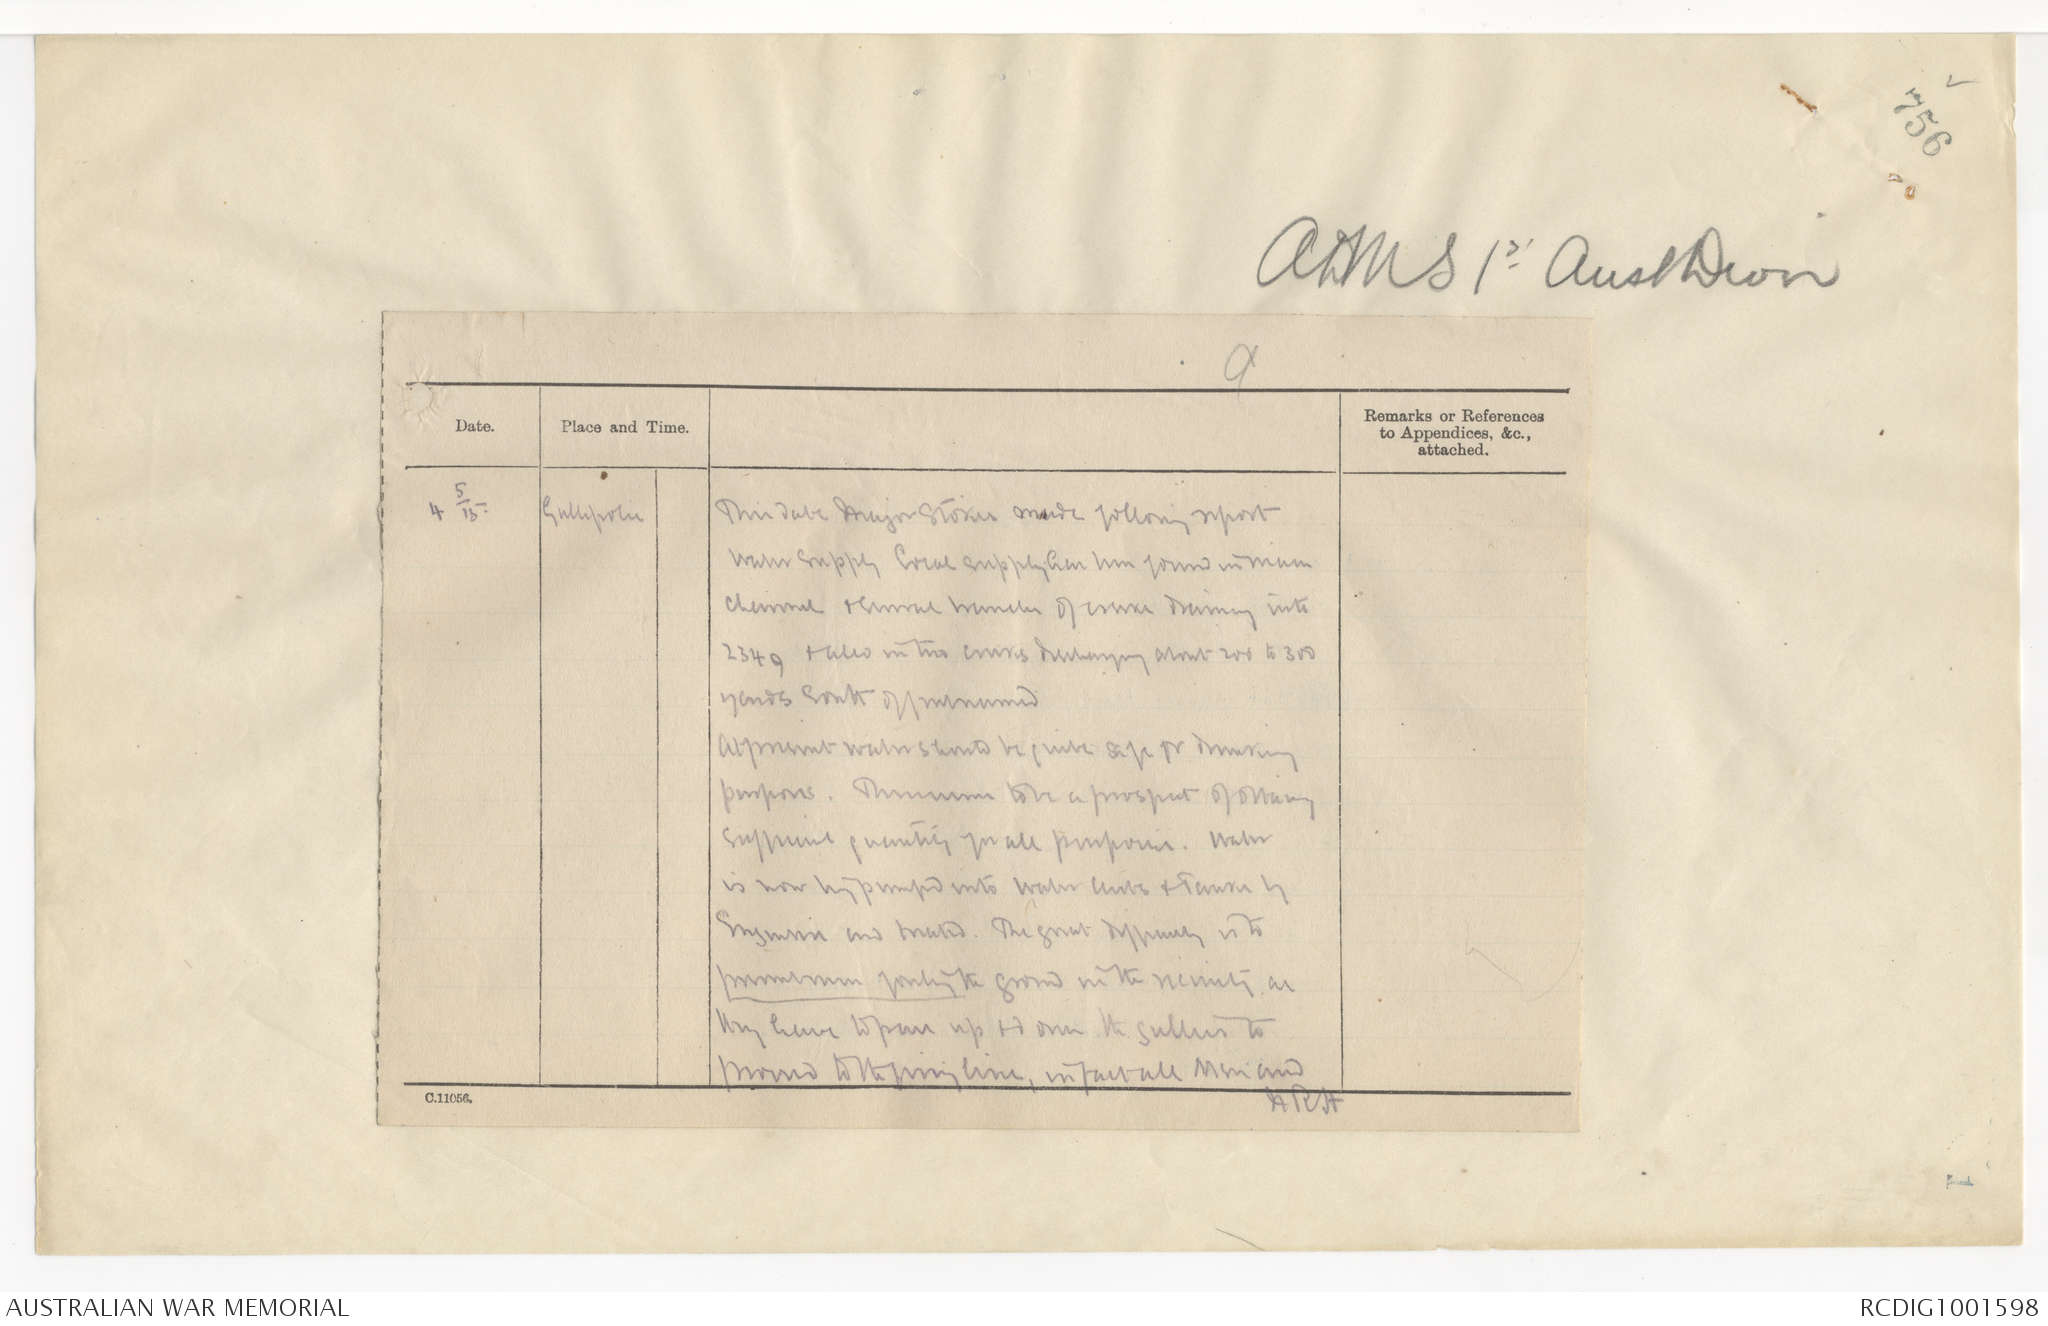 756
ADMS 1st Aust Divn
9
Date.
Place and Time.
Remarks or References
to Appendices, &c.,
attached.
4 5/15
Gallipoli
This date Major Stokes made following report
Water Supply Local supply has been found in main
channel & several branches of creeks draining into
234 q & also in two creeks discharging about 200 to 300
yards South of
At present water should be quite safe for drinking
purposes. There seems to be a prospect of obtaining
sufficient quantity for all purposes. Water
is now being pumped into water carts & Tanks by
Engineers and treated. The great difficulty is to
prevent men fouling the ground in the vicinity as
they have to pass up & down the gullies to
proceed to the firing line, in fact all Men and
HRH
C.11056.
AUSTRALIAN WAR MEMORIAL
RCDIG1001598